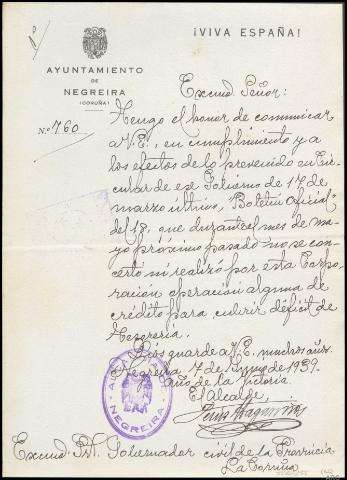 1º
¡VIVA ESPAÑA!
AYUNTAMIENTO
DE
NEGREIRA
(CORUÑA)
Nº 760
Excmo. Señor:
Tengo el honor de comunicar
a V.E., en cumplimiento y a
los efectos de lo prevenido en Cir-
cular de ese Gobierno de 17 de
marzo último, Boletín Oficial
del 18, que durante el mes de ma-
yo próximo pasado no se con-
certó ni realizó por esta Corpo-
ración operación alguna de
crédito para cubrir déficit de
Tesorería.
Dios guarde a V.E. muchos años.
Negreira, 7 de Junio de 1939.
Año de la Victoria.
El Alcalde,
AYUNTAMIENTO
NEGREIRA
Excmo. Sr. Gobernador civil de la Provincia
La Coruña